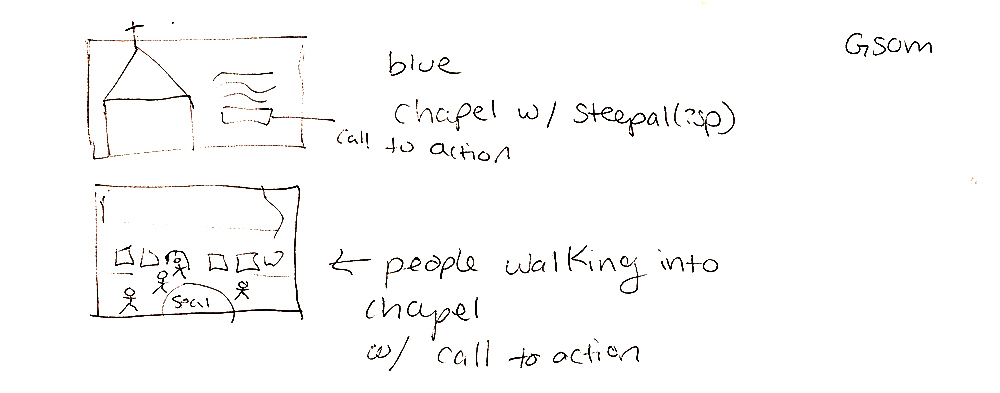 Gsom
blue
chapel w/ steepal(?sp)
call to action
← people walking into
chapel
w/ call to action
Seal